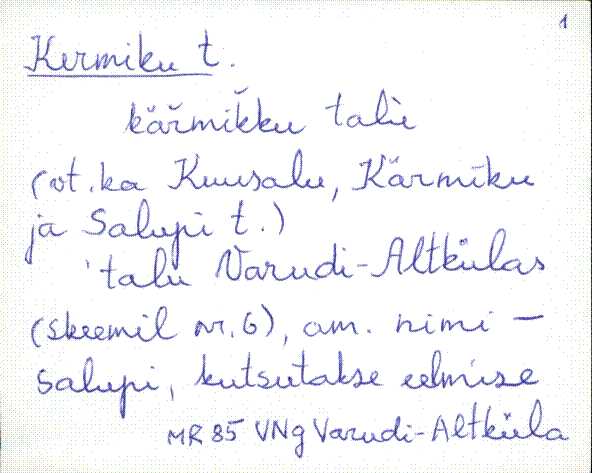 1
Kermiku t.
kär̆mik̆ku talù
(vt. ka Kuusalu, Kärmiku
ja Salupi t.)
talu Varudi-Altkülas
(skeemil nr. 6), am. nimi –
Salupi, kutsutakse eelmise
MR 85 VNg Varudi-Altküla